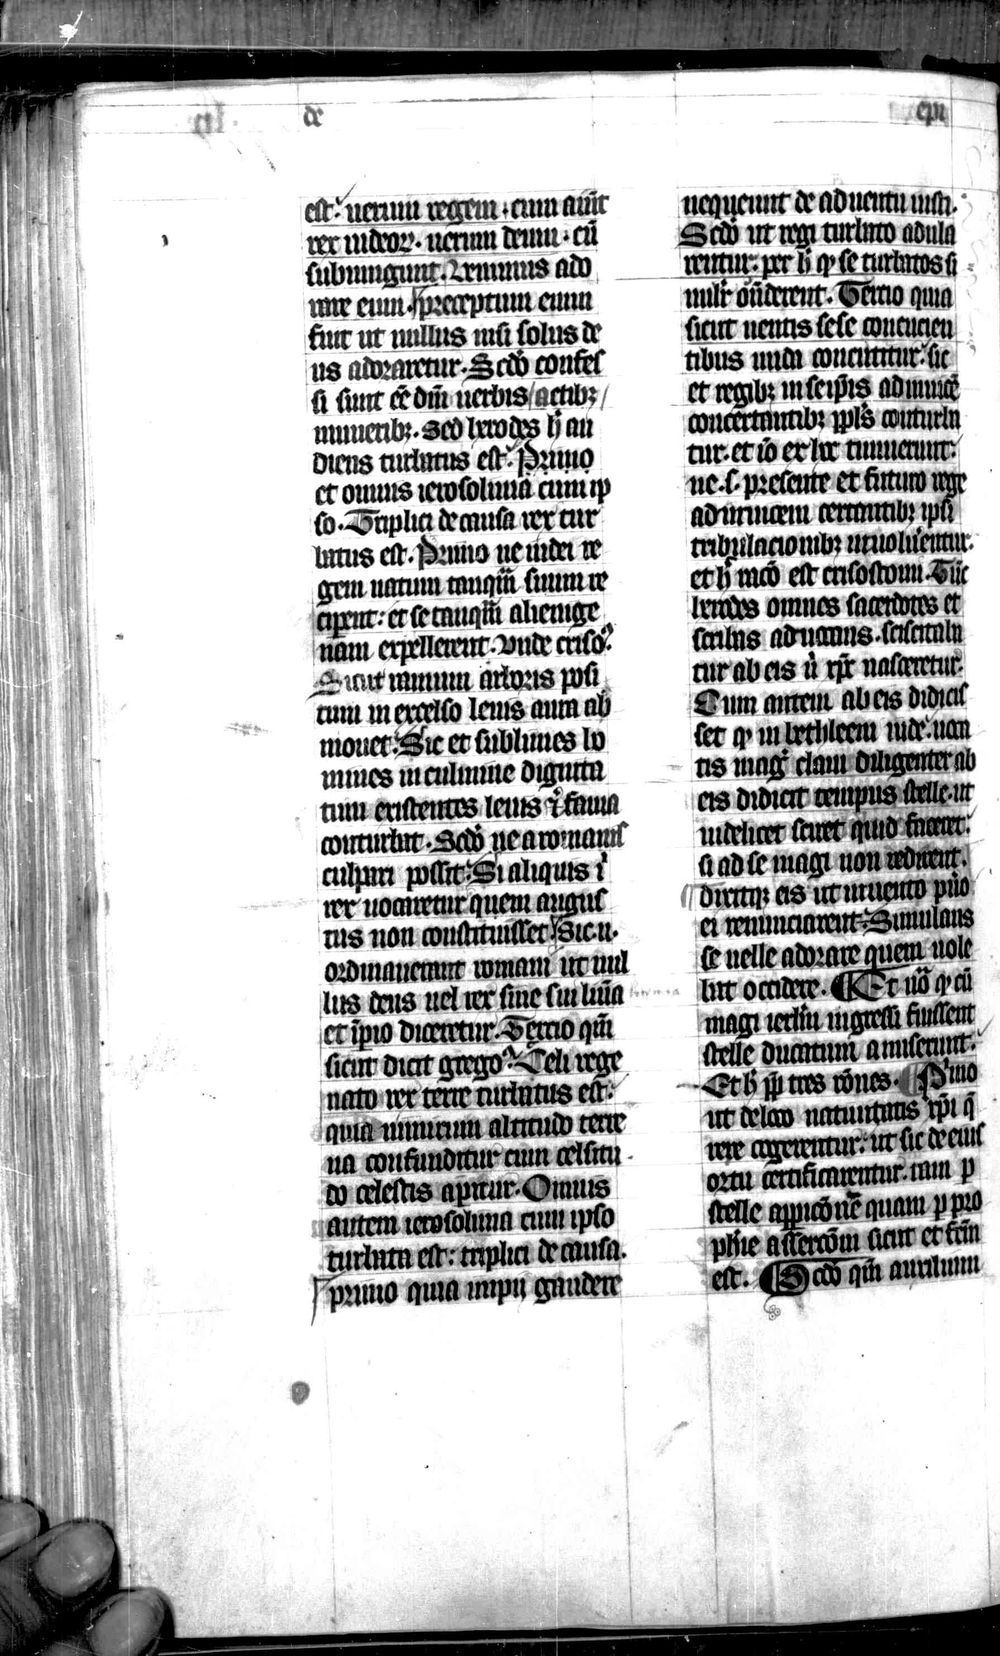 de
epi
est. uerum regem. cum aiunt
rex iudeoꝝ. uerum deum. cū
subiungunt. Uenimus ado
rare eum. preceptum enim
fuit ut nullus nisi solus de
us adoraretur. Scdo confes
si sunt eē dm̄ uerbis actibꝫ
muneribꝫ. Sed herodes h̄ au
diens turbatus est. Primo
et omnis ierosolima cum ip
so. Triplici de causa rex tur
batus est. Primo ne iudei re
gem natum tanqm̄ suum re
ciperent: et se tanqm̄ alienige
nam expellerent. Unde criso.
Sicut ramum arboris posi
tum in excelso leuis aura ab
mouet. Sic et sublimes ho
mines in culmine dignita
tum existentes leuis fama
conturbat. Scdo ne a romanis
culpari possit. Si aliquis i
rex uocaretur quem augus
tus non constituisset. Sic n.
ordinauerant romani ut nul
lus deus uel rex sine sui liūa
et ip̄io diceretur. Tercio qm̄
sicut dicit grego. Celi rege
nato rex terre turbatus est.
quia nimirum altitudo terre
na confunditur cum celsitu
do celestis aperitur. Omnis
autem ierosolima cum ipso
turbata est: triplici de causa.
primo quia impij gaudere
nequeunt de aduentu iusti.
Scdo ut regi turbato adula
rentur: per h̄ ꝙ se turbatos si
milr ondērent. Tercio quia
sicut uentis sese concucien
tibus unda concutitur: sic
et regibꝫ in seip̄is adinuicē
concertantibꝫ ppls conturba
tur. et iō ex hoc timuerunt:
ne. s. presente et futuro rege
adinuicem certantibꝫ ipsi
tribulacionibꝫ inuoluerentur.
et h̄ racō est crisostomi. Tūc
herodes omnes sacerdotes et
scribas aduocans. sciscitaba
tur ab eis u xpr nasceretur.
Cum autem ab eis didicis
set ꝙ in bethleem iude. uoca
tis mag clam diligenter ab
eis didicit tempus stelle. ut
uidelicet sciret quid faceret.
si ad se magi non redirent.
dixitqꝫ eis ut inuento puo
ei renunciarent. Simulans
se uelle adorare quem uole
bat occidere. Et uo ꝙ cū
magi ierlm ingressi fuissent
stelle ducatum amiserunt.
Et h̄ pp tres rōnes. Pimo
ut de loco natiuitatis xpi q̄
rere cogerentur: ut sic de eius
ortu certificarentur. tam p
stelle appicōnē quam p pro
phie assercōm sicut et fcm
est. Scdo qm auxilium